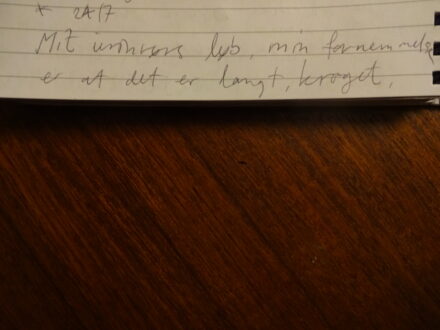 * 24/7
Mit univers løb, min fornemmelse
er at det er langt, kroget,